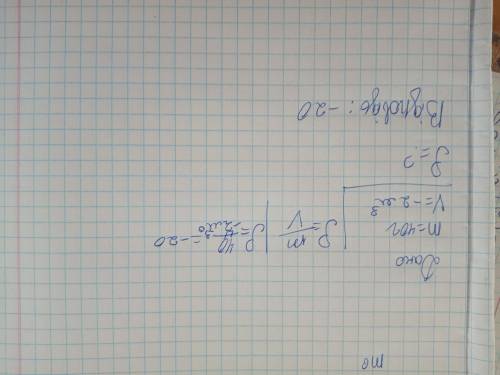 Дано
m=40г
V=-2 см³
ρ=?
ρ=m/V
ρ=40/-2 =-20
Відповідь: -20